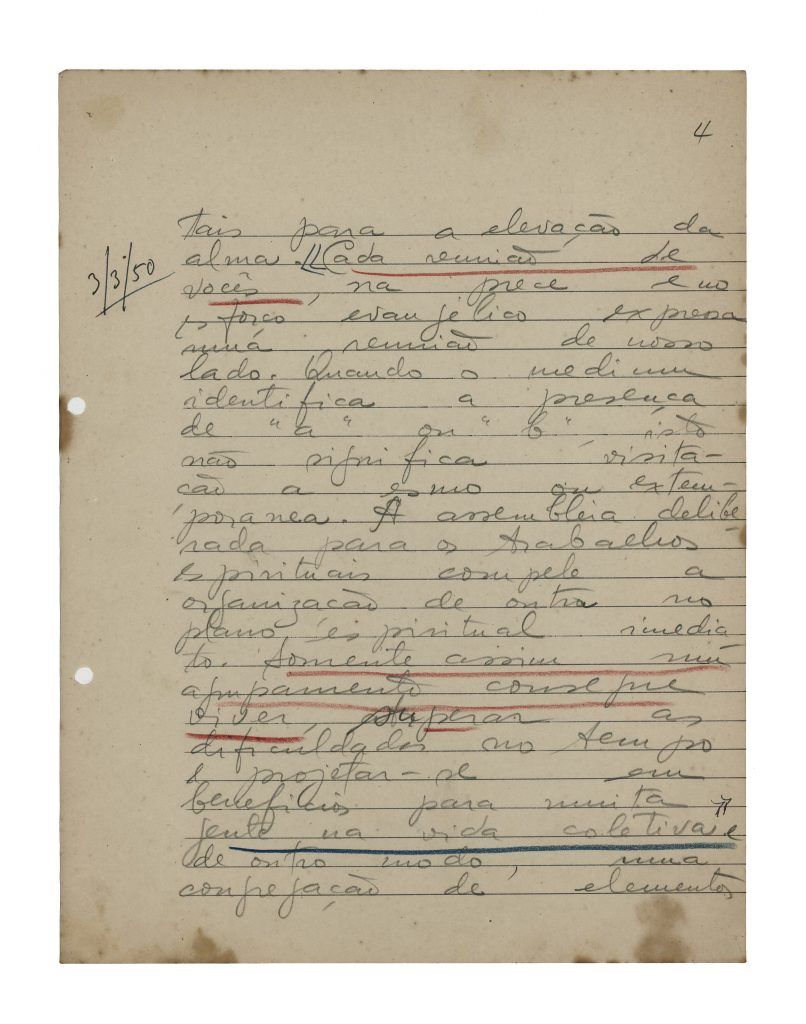 4
tais para a elevação da
3/3/50
alma. "Cada reunião de
vocês, na prece e no
esforço evangélico expressa
uma reunião de nosso
lado. Quando o medium
identifica a presença
de "a" ou "b", isto
não significa visita-
ção a esmo ou extem-
poranea. A assembleia delibe
rada para os trabalhos
espirituais compele a
organização de outra no
plano espiritual imedia
to. Somente assim um
agrupamento consegue
viver, superar as
dificuldades no tempo
e projetar-se em
beneficios para muita
gente na vida coletiva" e
de outro modo, uma
congregação de elementos